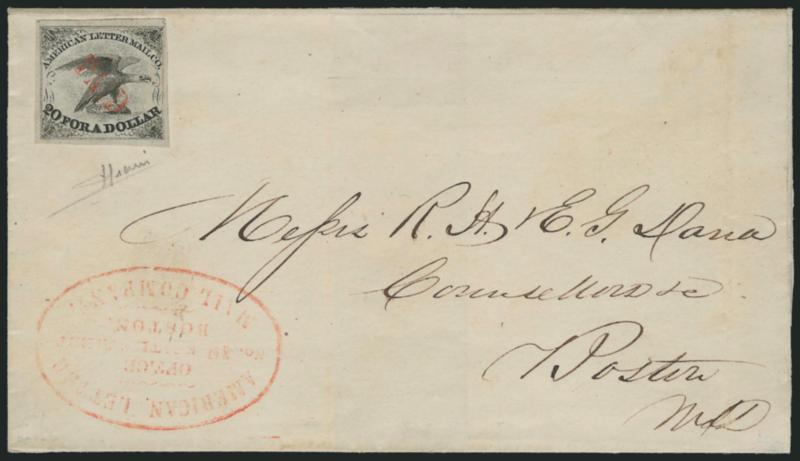 AMERICAN LETTER MAIL CO.
PAID
20 FOR A DOLLAR
Messrs R. H. & E. G. Dana
Counsellors &c
Boston
AMERICAN LETTER
OFFICE
No.
BOSTON.
MAIL COMPANY.